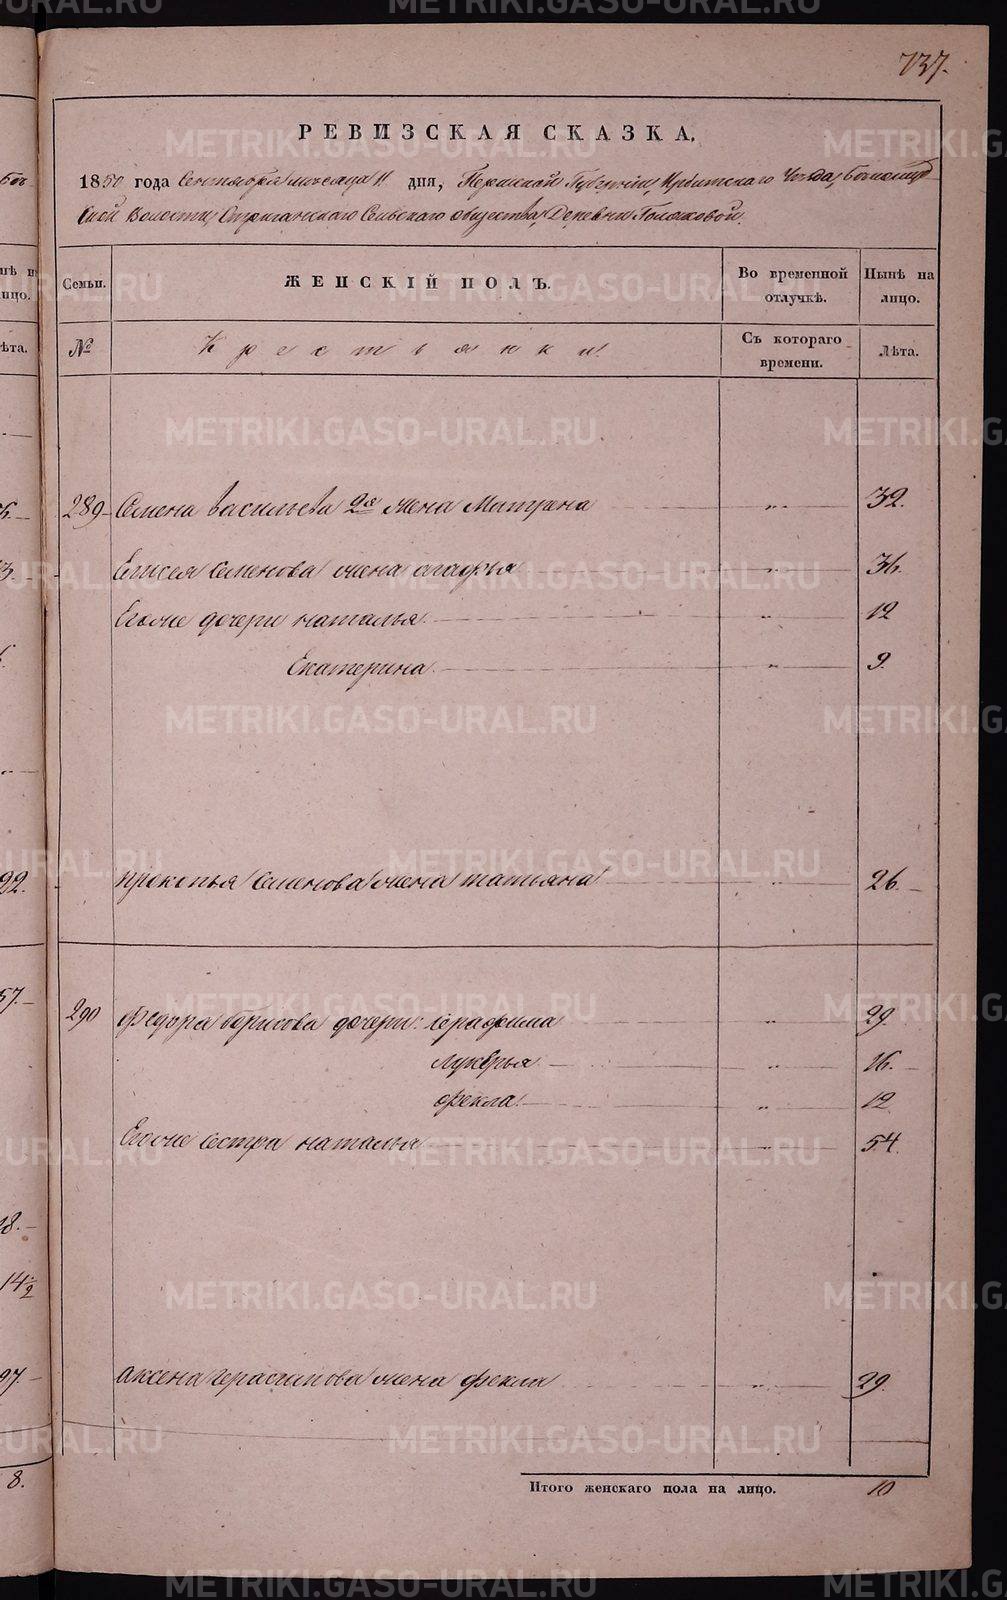 737.
РЕВИЗСКАЯ СКАЗКА.
1850 года Сентября месяца 11 дня, Пермской Губернiи Ирбитского Уезда,
ской Волости, Сельского общества, Деревни
Семьи.
ЖЕНСКІЙ ПОЛЪ.
Во временной отлучкѣ.
Нынѣ на лицо.
№
Крестьянки.
Съ котораго времени.
Лѣта.
289 Семена Васильева 2я жена Матрена " 32.
Елисея Семенова жена Агафья " 36.
Егоже дочери Наталья " 12
Екатерина " 9.
Прокопья Семенова жена Татьяна " 26.
290 Федора Борисова дочери: Серафима " 29.
Лукерья " 16.
Фекла " 12
Егоже сестра Наталья " 54.
Аксена Герасимова жена Фекла " 29.
Итого женскаго пола на лицо. 10
22.
57.
18.
14 1/2
97.
8.
METRIKI.GASO-URAL.RU